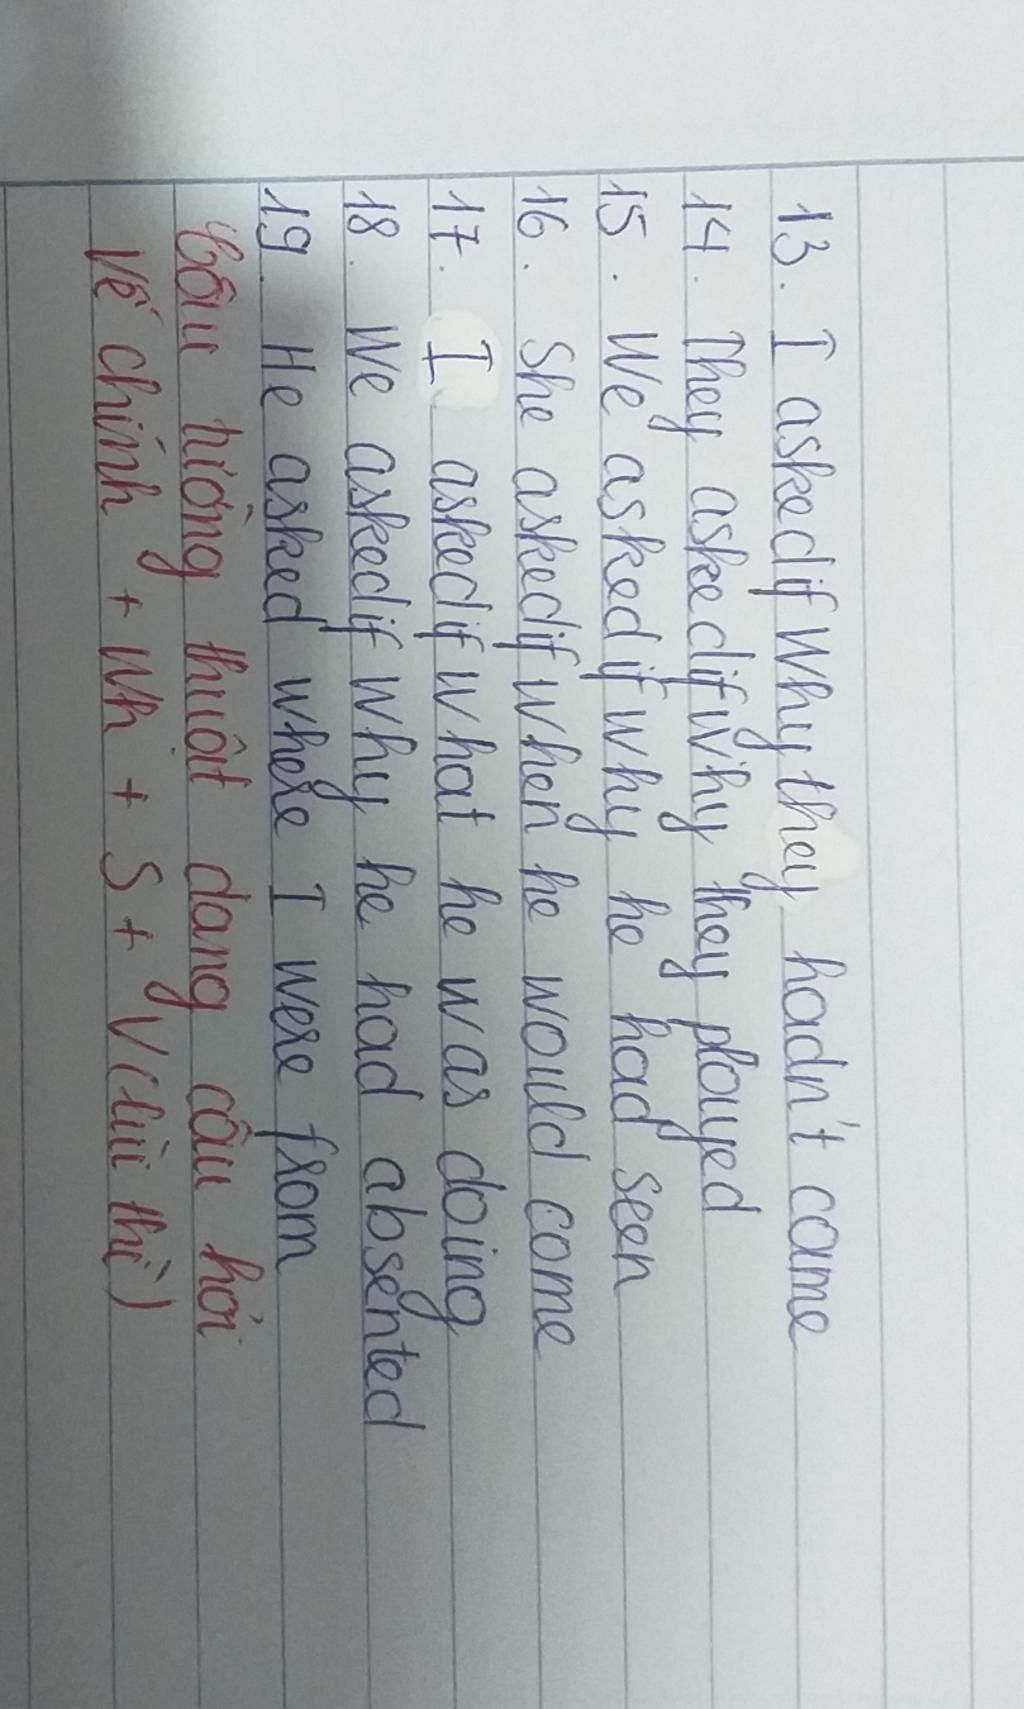 13. I askedif why they hadn't came
14. They askedif why they played
15. We asked if why he had seen
16. She askedif when he would come
17. I askedif what he was doing
18. We askedif why he had absented
19. He asked where I were from
Câu tường thuật dạng câu hỏi
Vế chính + Wh + S + V (lùi thì)